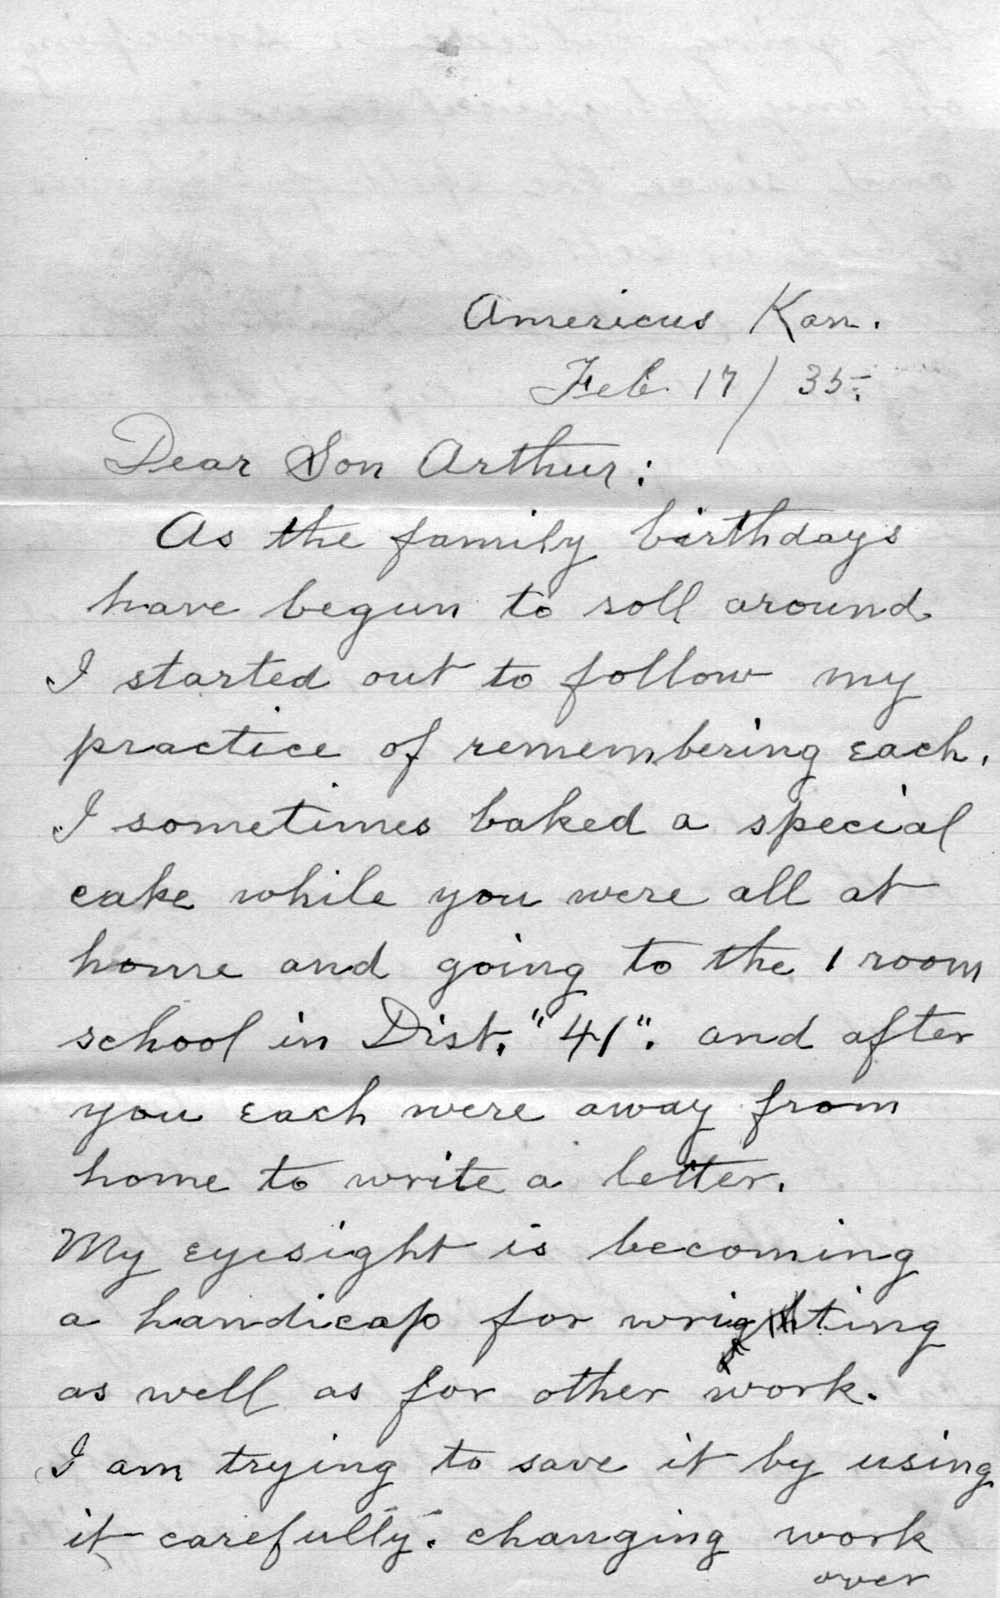 Americus Kan.
Feb. 17/35.
Dear Son Arthur:
As the family birthdays
have begun to roll around
I started out to follow my
practice of remembering each.
I sometimes baked a special
cake while you were all at
home and going to the 1 room
school in Dist. "41". and after
you each were away from
home to write a letter.
My eyesight is becoming
a handicap for writing
as well as for other work.
I am trying to save it by using
it carefully. changing work
over